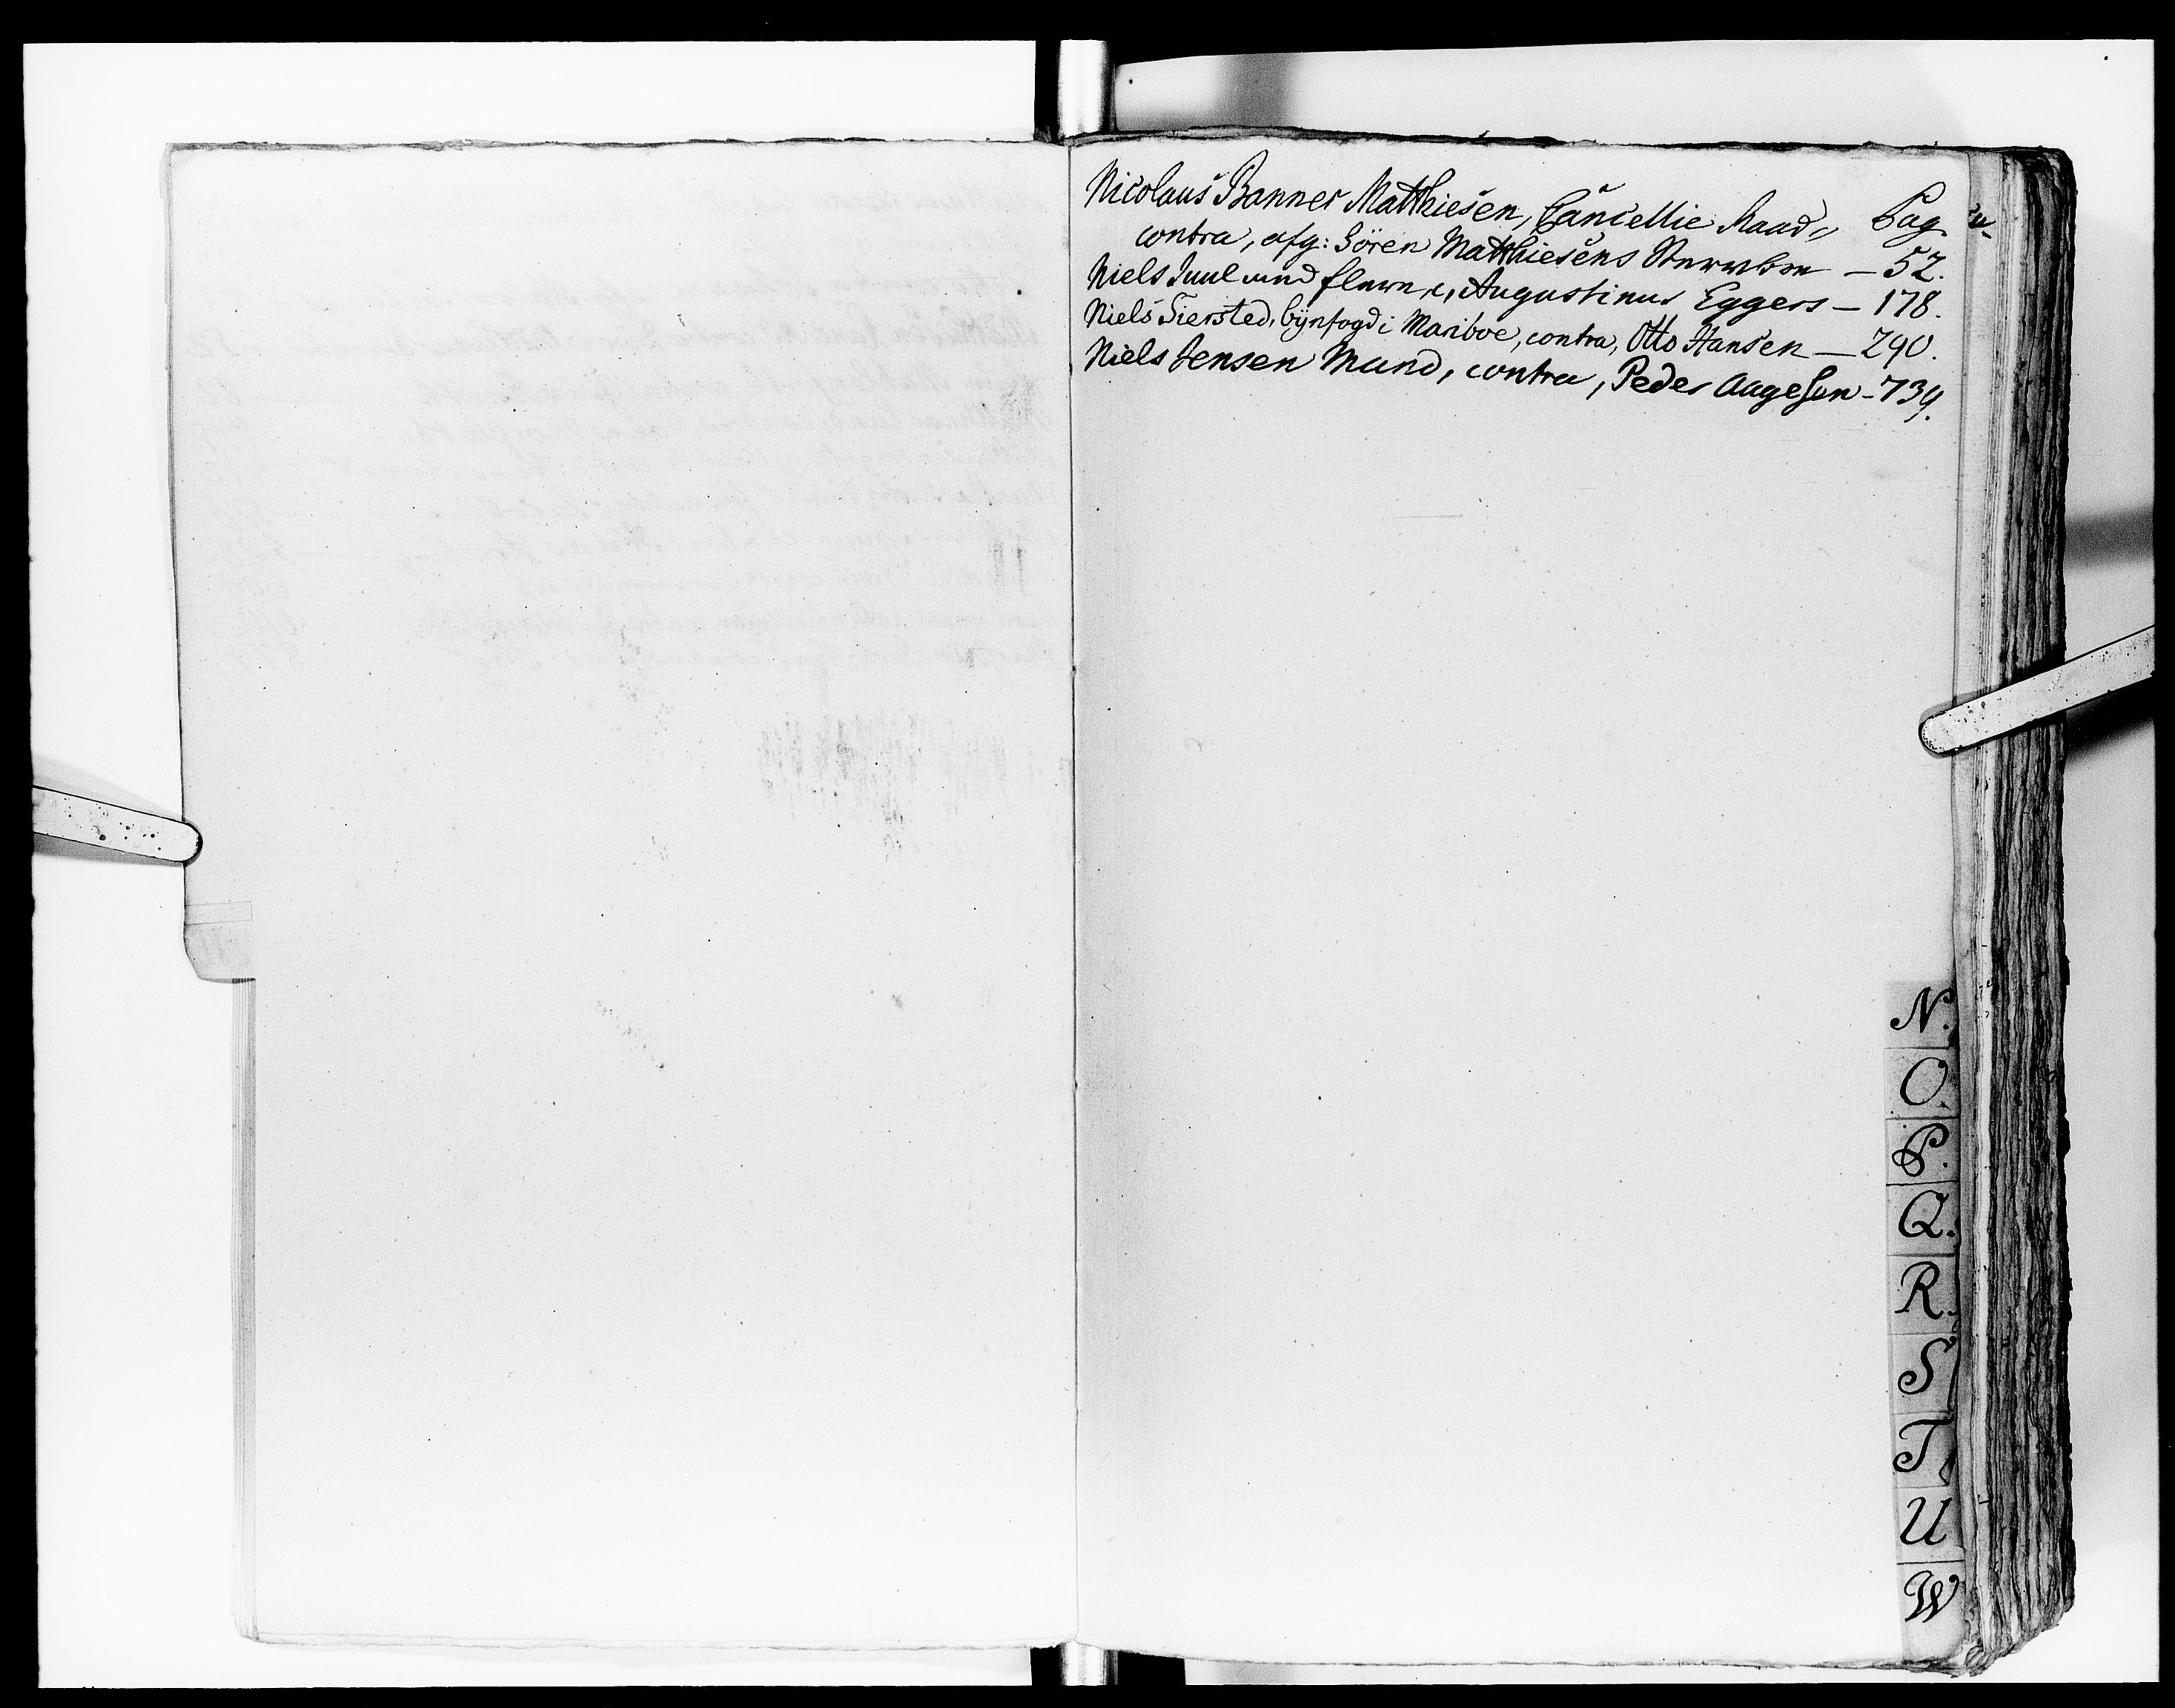 Nicolaus Banner Matthiesen, Cancellie Raad, Pag.
contra, afg: Sören Matthiesens Sterboe — 52.
Niels Juul und fleere, c, Augustinus Eggers — 178.
Niels Tiersted, byefogd i Mariboe, contra, Otto Hansen — 290.
Niels Jensen Mund, contra, Peder Aagesen - 739.
N.
O.
P.
Q.
R.
S
T
U
W